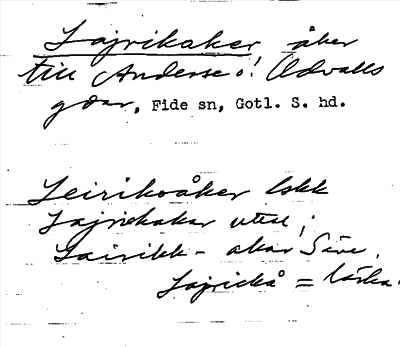 Lajrikaker åker
till Anderse i! Odvalls
gdar, Fide sn, Gotl. S. hd.
Leirikoåker lskk
Lajrickakar utal;
Lairikk- akar Säve.
Lajrickå = lärka.